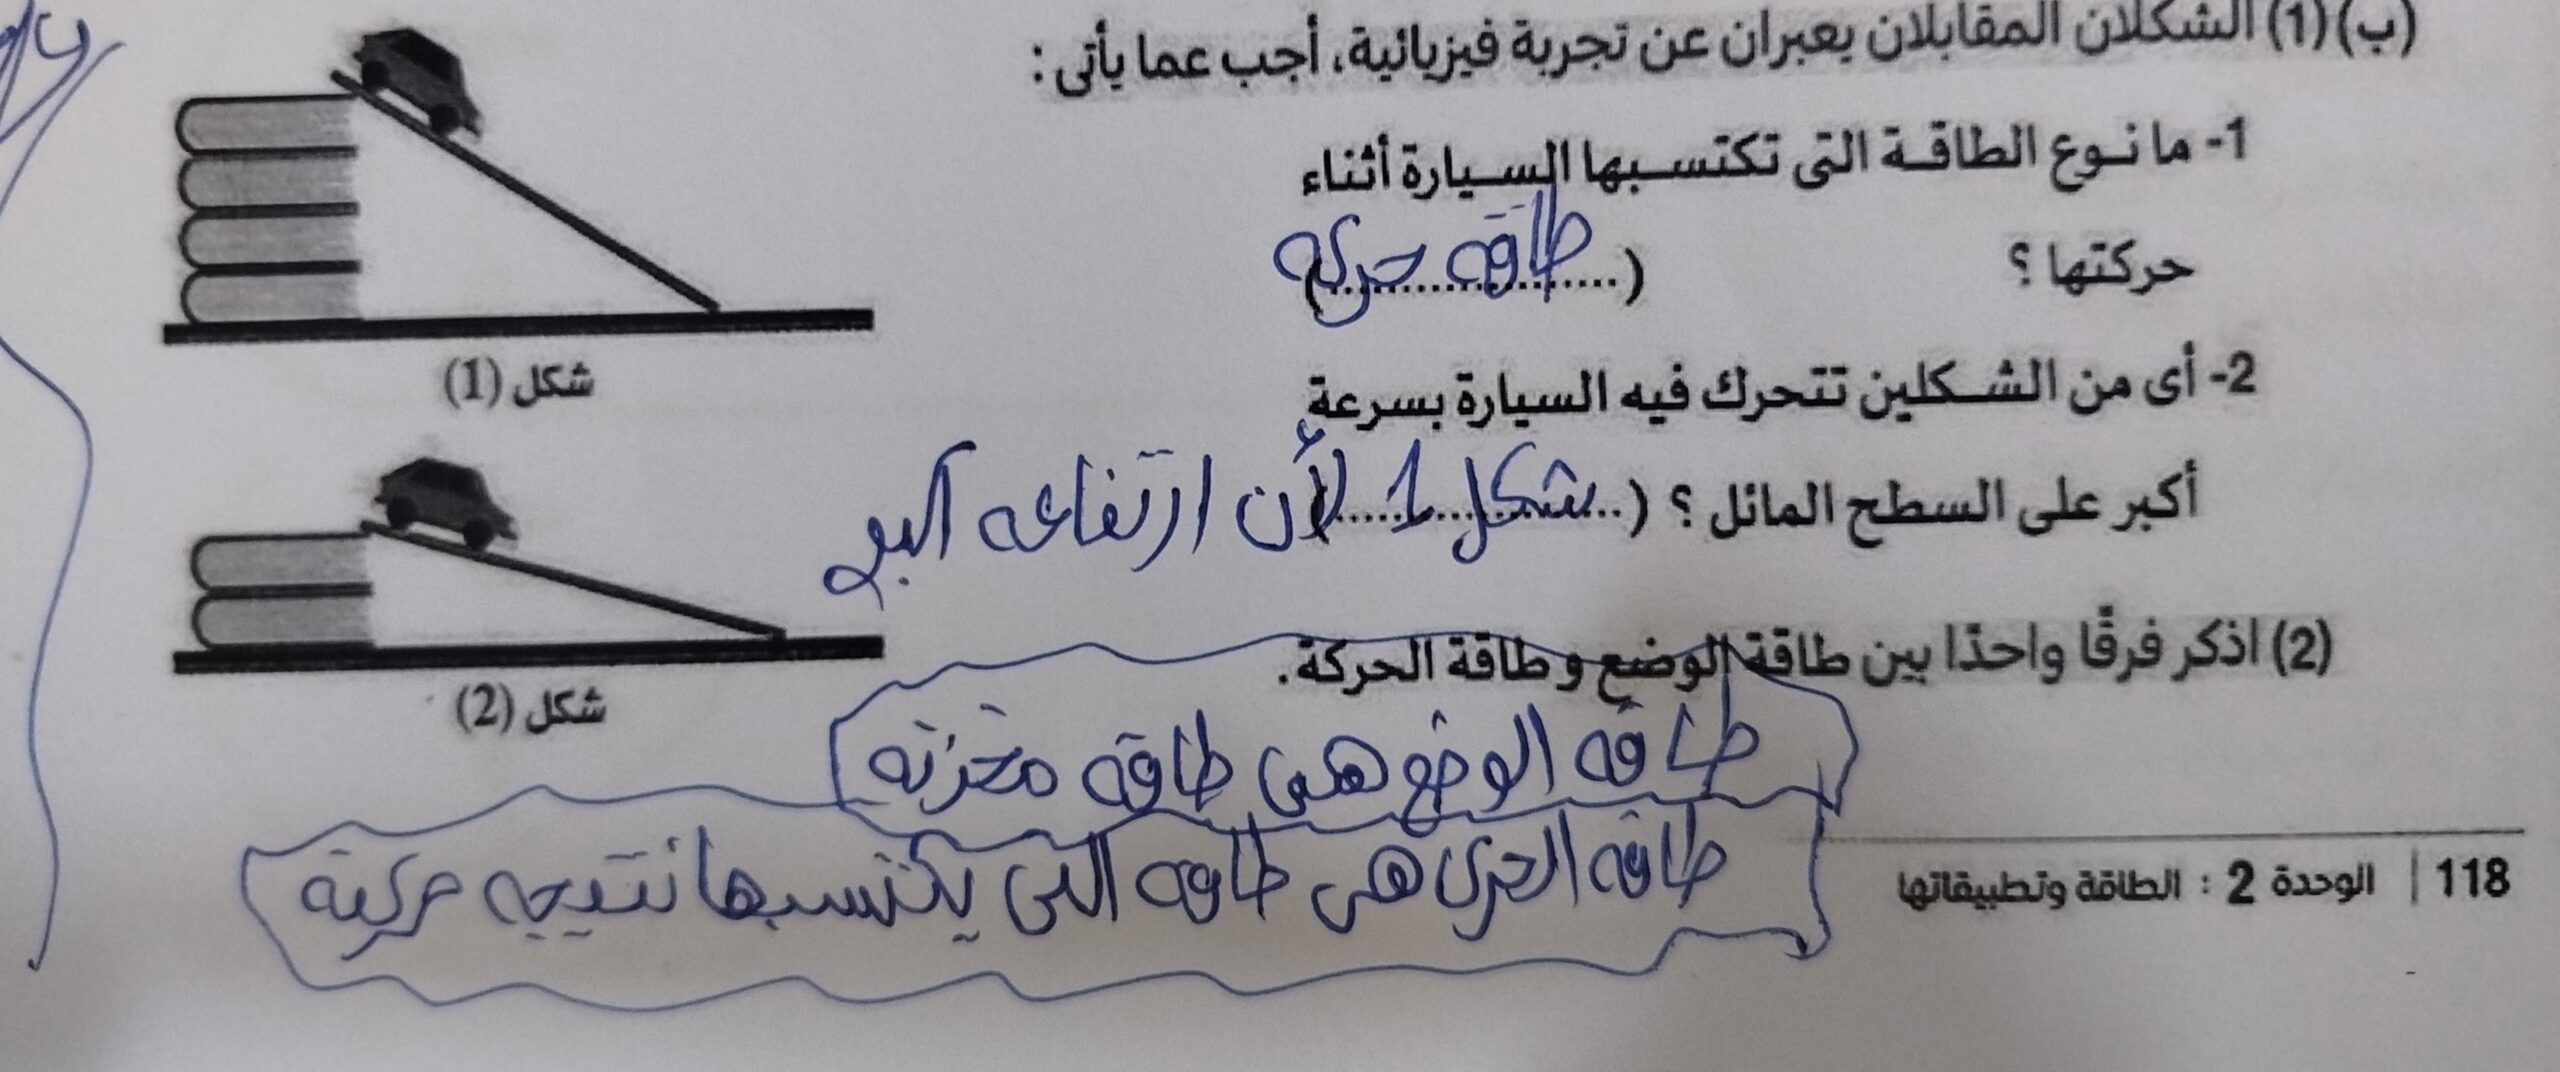 (ب) (1) الشكلان المقابلان يعبران عن تجربة فيزيائية، أجب عما يأتى :
1- ما نوع الطاقة التى تكتسبها السيارة أثناء
حركتها ؟ (....................)
طاقه حركه
2- أى من الشكلين تتحرك فيه السيارة بسرعة
أكبر على السطح المائل ؟ (....................)
شكل 1 لأن ارتفاعه اكبر
شكل (1)
شكل (2)
(2) اذكر فرقًا واحدًا بين طاقة الوضع وطاقة الحركة.
طاقه الوضع هى طاقه مخزنه
طاقه الحركه هى طاقه التى يكتسبها نتيجه حركته
118 | الوحدة 2 : الطاقة وتطبيقاتها